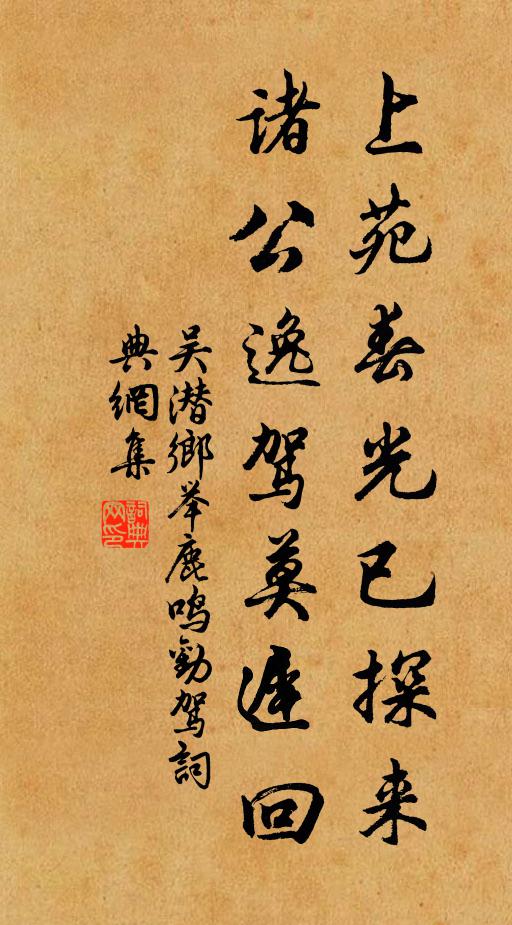 上苑春光已探来
诸公逸驾莫迟回
吴潜鄉举鹿鸣勸驾詞
典網集
詞典网印